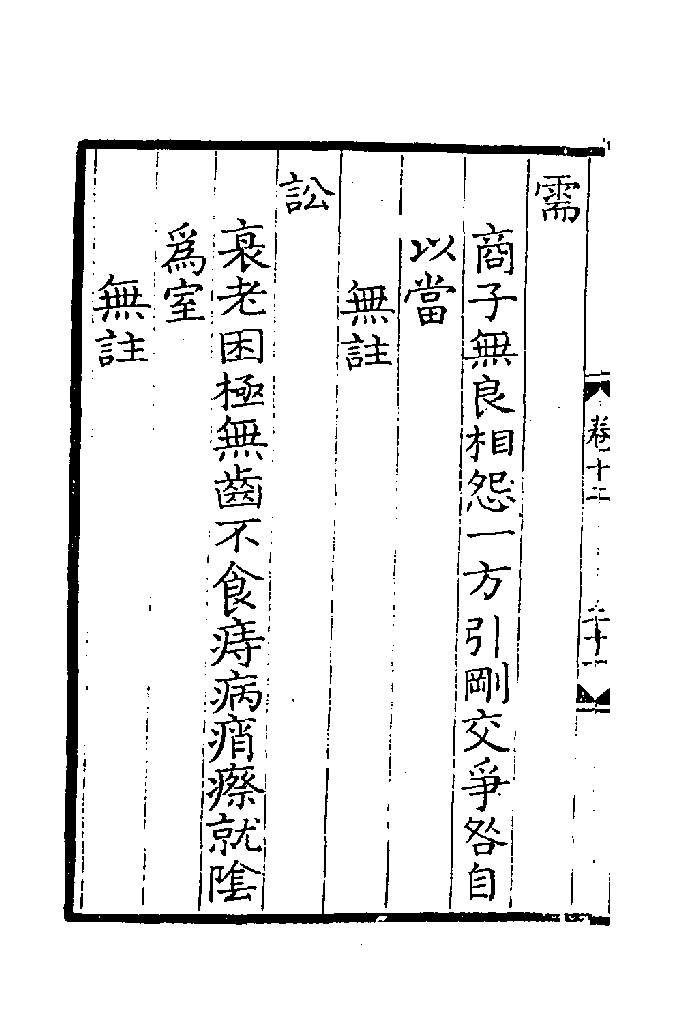 需
商子無良相怨一方引剛交爭咎自
以當
無註
訟
衰老困極無齒不食痔病痟瘵就陰
為室
無註
卷十二